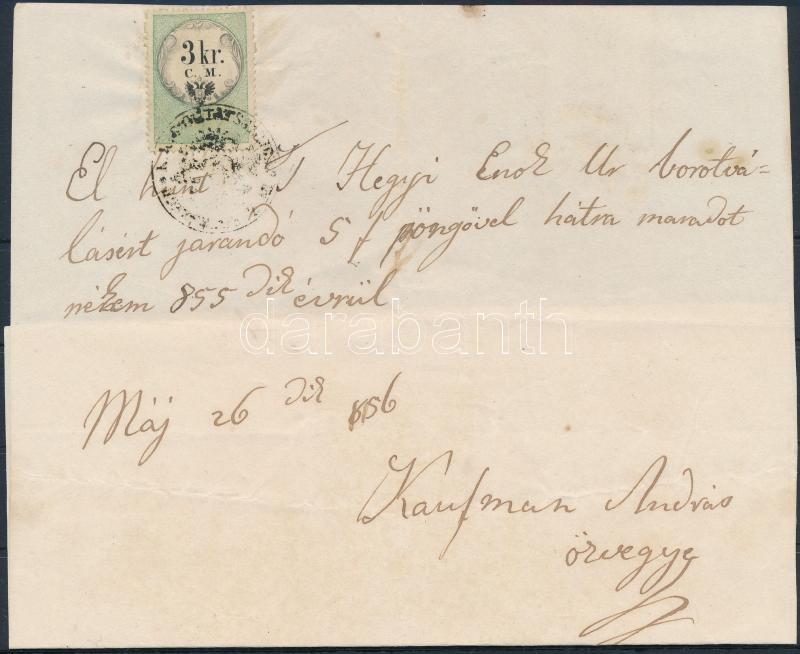 3 kr.
C. M.
El hunt T Hegyi Enok Ur borotvá-
lásért jarandó 5 f pöngövel hátra maradot
nékem 855 dik évrül
darabanth
Máj 26 dik 856
Kaufman András
özvegye